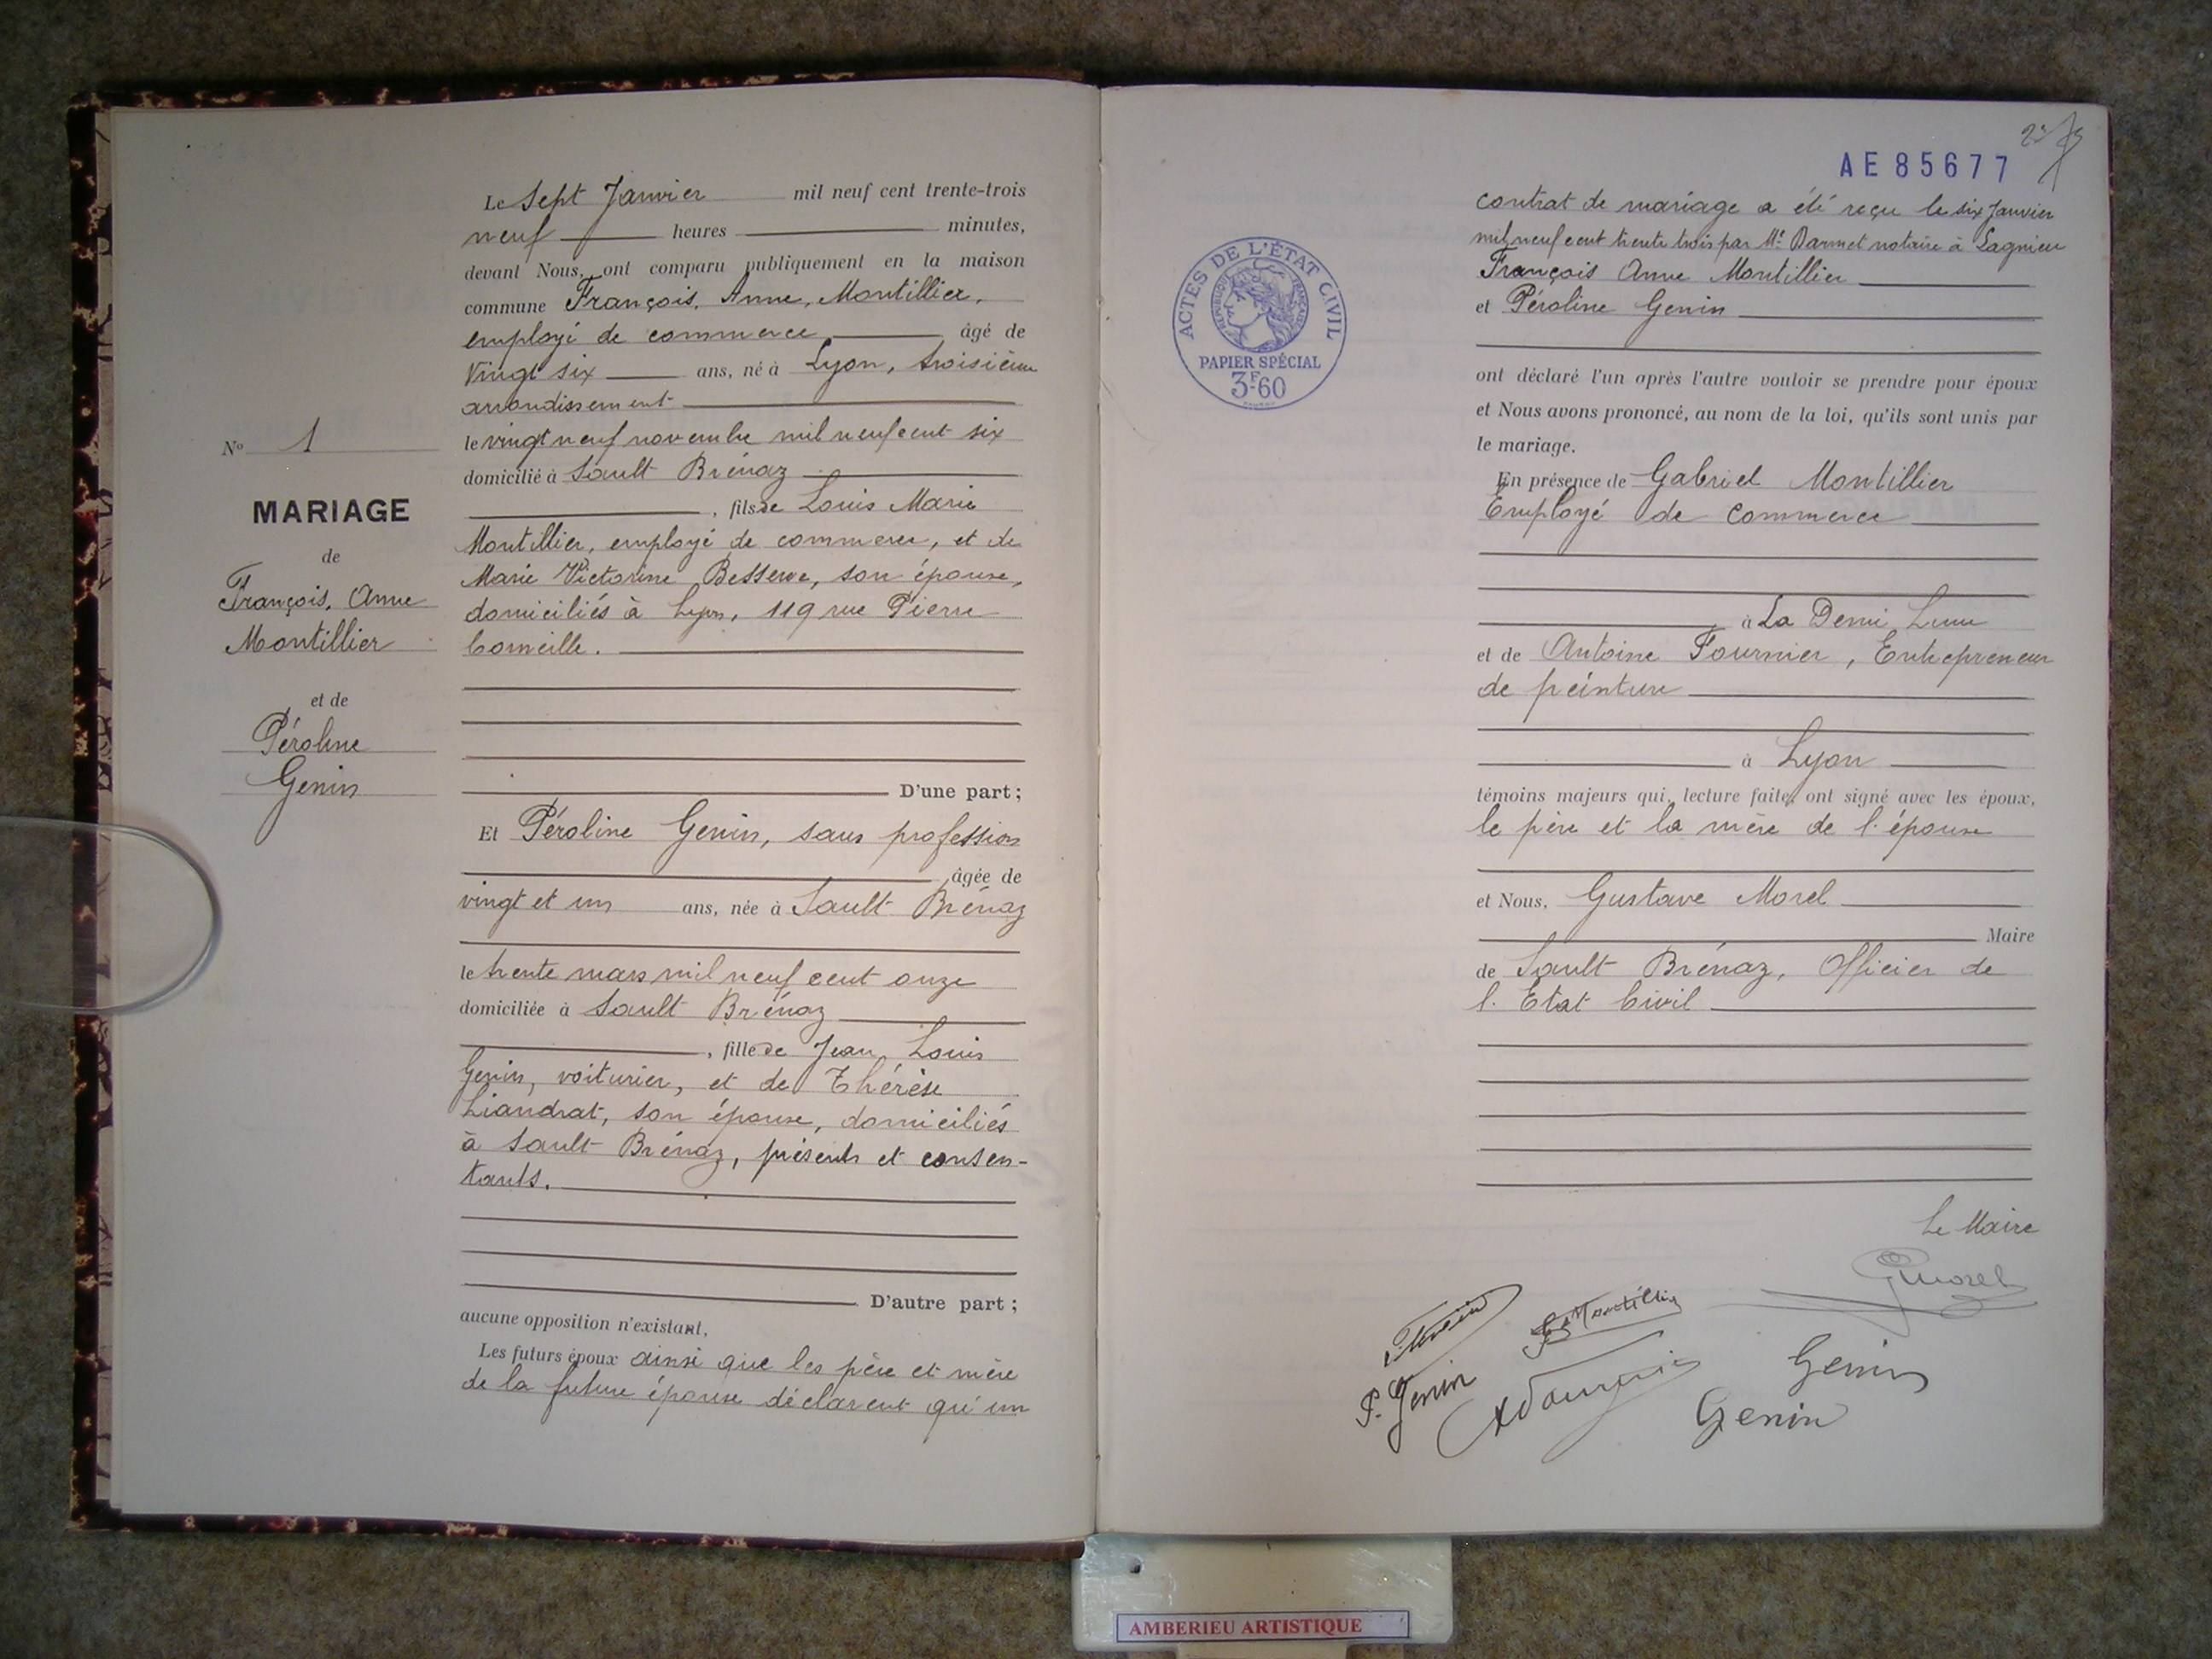 N° 1
MARIAGE
de
François, Anne
Montillier
et de
Péroline
Genin
Le Sept Janvier mil neuf cent trente-trois
neuf heures minutes,
devant Nous, ont comparu publiquement en la maison
commune François, Anne, Montillier,
employé de commerce âgé de
vingt six ans, né à Lyon, troisième
arrondissement
le vingt neuf novembre mil neuf cent six
domicilié à Sault Brénaz
, fils de Louis Marie
Montillier, employé de commerce, et de
Marie Victorine Besserve, son épouse,
domiciliés à Lyon, 119 rue Pierre
Corneille.
D'une part ;
Et Péroline Genin, sans profession
âgée de
vingt et un ans, née à Sault Brénaz
le trente mars mil neuf cent onze
domiciliée à Sault Brénaz
, fille de Jean Louis
Genin, voiturier, et de Thérèse
Liandrat, son épouse, domiciliés
à Sault Brénaz, présents et consen-
tants.
D'autre part ;
aucune opposition n'existant,
Les futurs époux ainsi que les père et mère
de la future épouse déclarent qu'un
AE 85677
ACTES DE L'ÉTAT CIVIL
RÉPUBLIQUE FRANÇAISE
PAPIER SPÉCIAL
3F60
contrat de mariage a été reçu le six Janvier
mil neuf cent trente trois par Me Barmet notaire à Lagnieu
François Anne Montillier
et Péroline Genin
ont déclaré l'un après l'autre vouloir se prendre pour époux
et Nous avons prononcé, au nom de la loi, qu'ils sont unis par
le mariage.
En présence de Gabriel Montillier
Employé de Commerce
à La Demi Lune
et de Antoine Fournier, Entrepreneur
de peinture
à Lyon
témoins majeurs qui, lecture faite, ont signé avec les époux,
le père et la mère de l'épouse
et Nous, Gustave Morel
Maire
de Sault Brénaz, Officier de
l'Etat Civil
Le Maire
GMorel
Montillier
P. Genin
Genin
Genin
AMBERIEU ARTISTIQUE